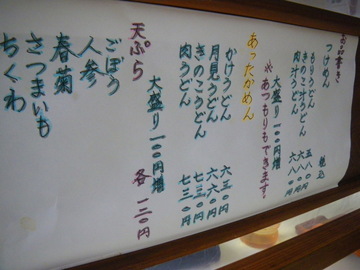 お品書き
税込
つけめん
もりうどん 五八〇円
きのこ汁うどん 六八〇円
肉汁うどん 六八〇円
大盛り一〇〇円増
※あつもりもできます。
あったかめん
かけうどん 六三〇円
月見うどん 六六〇円
きのこうどん 七三〇円
肉うどん 七三〇円
大盛り一〇〇円増
天ぷら 各一二〇円
ごぼう
人参
春菊
さつまいも
ちくわ